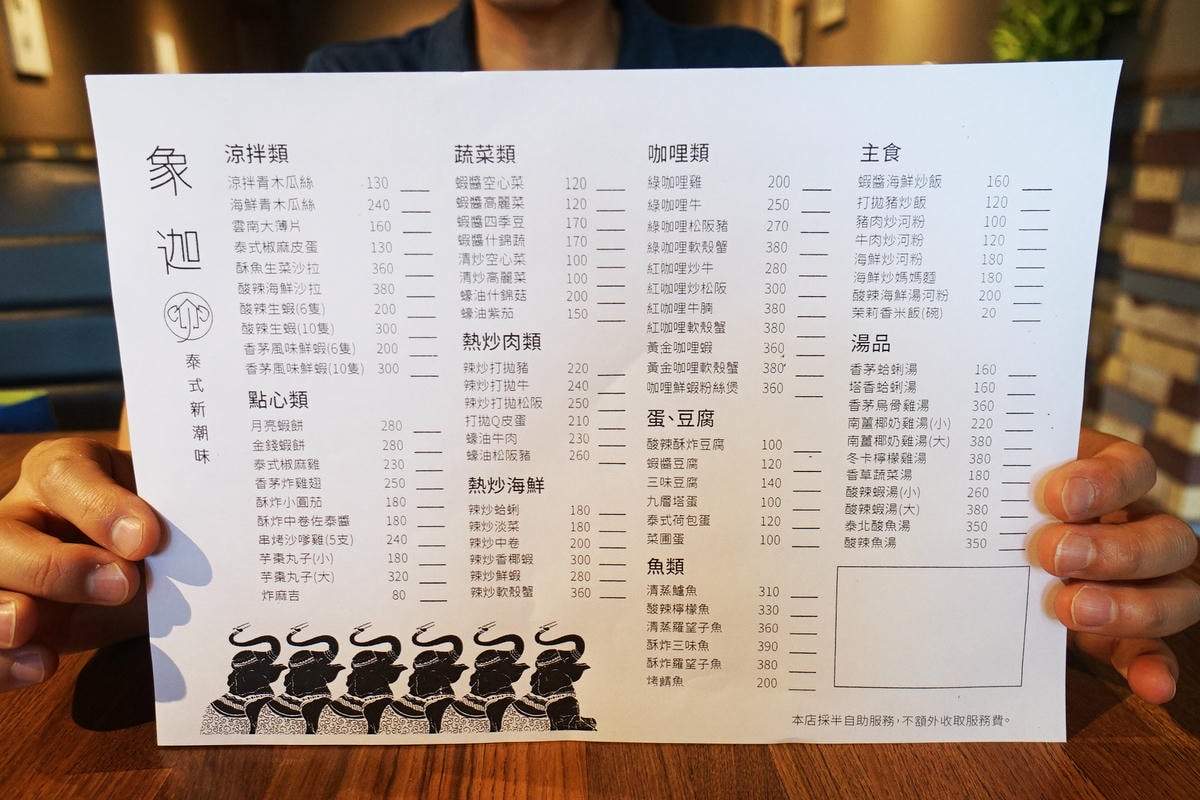 象迦
泰式新潮味
涼拌類
涼拌青木瓜絲 130
海鮮青木瓜絲 240
雲南大薄片 160
泰式椒麻皮蛋 130
酥魚生菜沙拉 360
酸辣海鮮沙拉 380
酸辣生蝦(6隻) 200
酸辣生蝦(10隻) 300
香茅風味鮮蝦(6隻) 200
香茅風味鮮蝦(10隻) 300
點心類
月亮蝦餅 280
金錢蝦餅 280
泰式椒麻雞 230
香茅炸雞翅 250
酥炸小圓茄 180
酥炸中卷佐泰醬 180
串烤沙嗲雞(5支) 240
芋棗丸子(小) 180
芋棗丸子(大) 320
炸麻吉 80
蔬菜類
蝦醬空心菜 120
蝦醬高麗菜 120
蝦醬四季豆 170
蝦醬什錦蔬 170
清炒空心菜 100
清炒高麗菜 100
蠔油什錦菇 200
蠔油紫茄 150
熱炒肉類
辣炒打拋豬 220
辣炒打拋牛 240
辣炒打拋松阪 250
打拋Q皮蛋 210
蠔油牛肉 230
蠔油松阪豬 260
熱炒海鮮
辣炒蛤蜊 180
辣炒淡菜 180
辣炒中卷 200
辣炒香椰蝦 300
辣炒鮮蝦 280
辣炒軟殼蟹 360
咖哩類
綠咖哩雞 200
綠咖哩牛 250
綠咖哩松阪豬 270
綠咖哩軟殼蟹 380
紅咖哩炒牛 280
紅咖哩炒松阪 300
紅咖哩牛腩 380
紅咖哩軟殼蟹 380
黃金咖哩蝦 360
黃金咖哩軟殼蟹 380
咖哩鮮蝦粉絲煲 360
蛋、豆腐
酸辣酥炸豆腐 100
蝦醬豆腐 120
三味豆腐 140
九層塔蛋 100
泰式荷包蛋 120
菜圃蛋 100
魚類
清蒸鱸魚 310
酸辣檸檬魚 330
清蒸羅望子魚 360
酥炸三味魚 390
酥炸羅望子魚 380
烤鯖魚 200
主食
蝦醬海鮮炒飯 160
打拋豬炒飯 120
豬肉炒河粉 100
牛肉炒河粉 120
海鮮炒河粉 180
海鮮炒媽媽麵 180
酸辣海鮮湯河粉 200
茉莉香米飯(碗) 20
湯品
香茅蛤蜊湯 160
塔香蛤蜊湯 160
香茅烏骨雞湯 360
南薑椰奶雞湯(小) 220
南薑椰奶雞湯(大) 380
冬卡檸檬雞湯 380
香草蔬菜湯 180
酸辣蝦湯(小) 260
酸辣蝦湯(大) 380
泰北酸魚湯 350
酸辣魚湯 350
本店採半自助服務,不額外收取服務費。